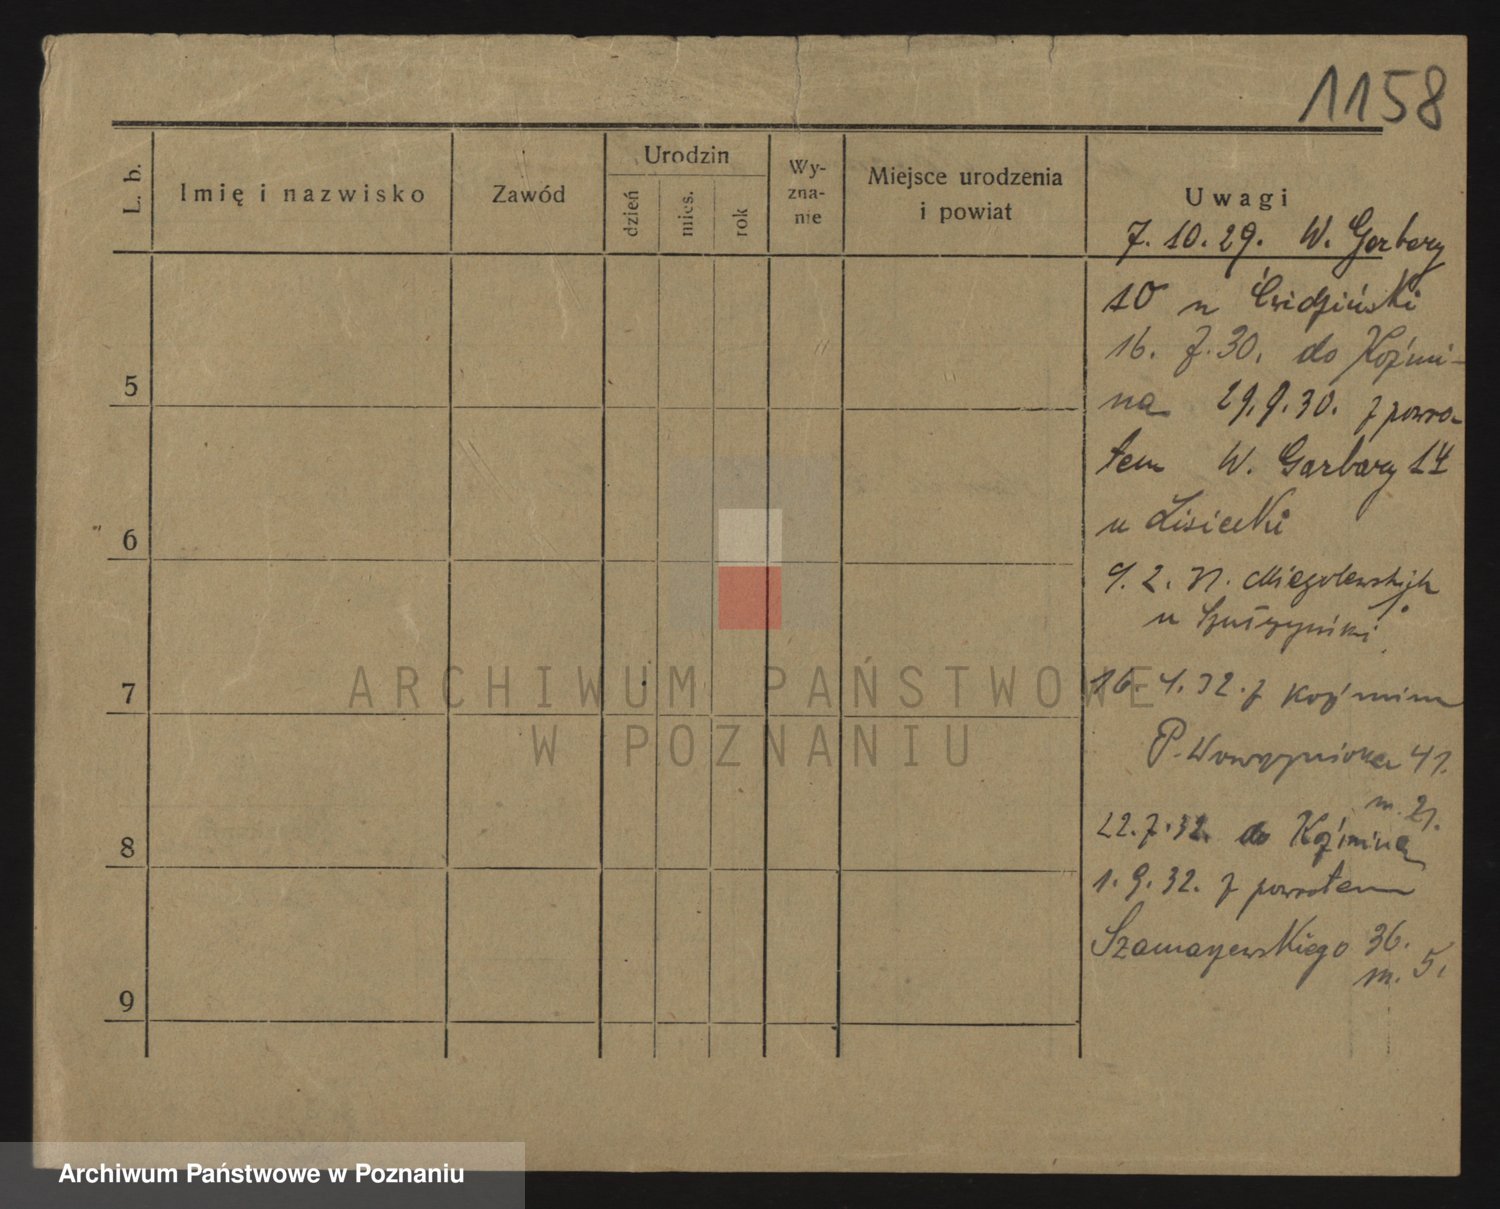 1158
L. b.
Imię i nazwisko
Zawód
Urodzin
dzień
mies.
rok
Wy-
zna-
nie
Miejsce urodzenia
i powiat
Uwagi
7. 10. 29. W. Garbary
10 u
16. 7. 30. do Koźmi-
na 29. 9. 30. z powro-
tem W. Garbary 14
u Lisiecki
9. 2. 31. Niegolewskich
u
16. 4. 32. z Koźmina
P. Wawrzyniaka 41.
m. 21.
22. 7. 32. do Koźmina
1. 9. 32. z powrotem
Szamarzewskiego 36.
m. 5.
5
6
7
8
9
ARCHIWUM PAŃSTWOWE
W POZNANIU
Archiwum Państwowe w Poznaniu